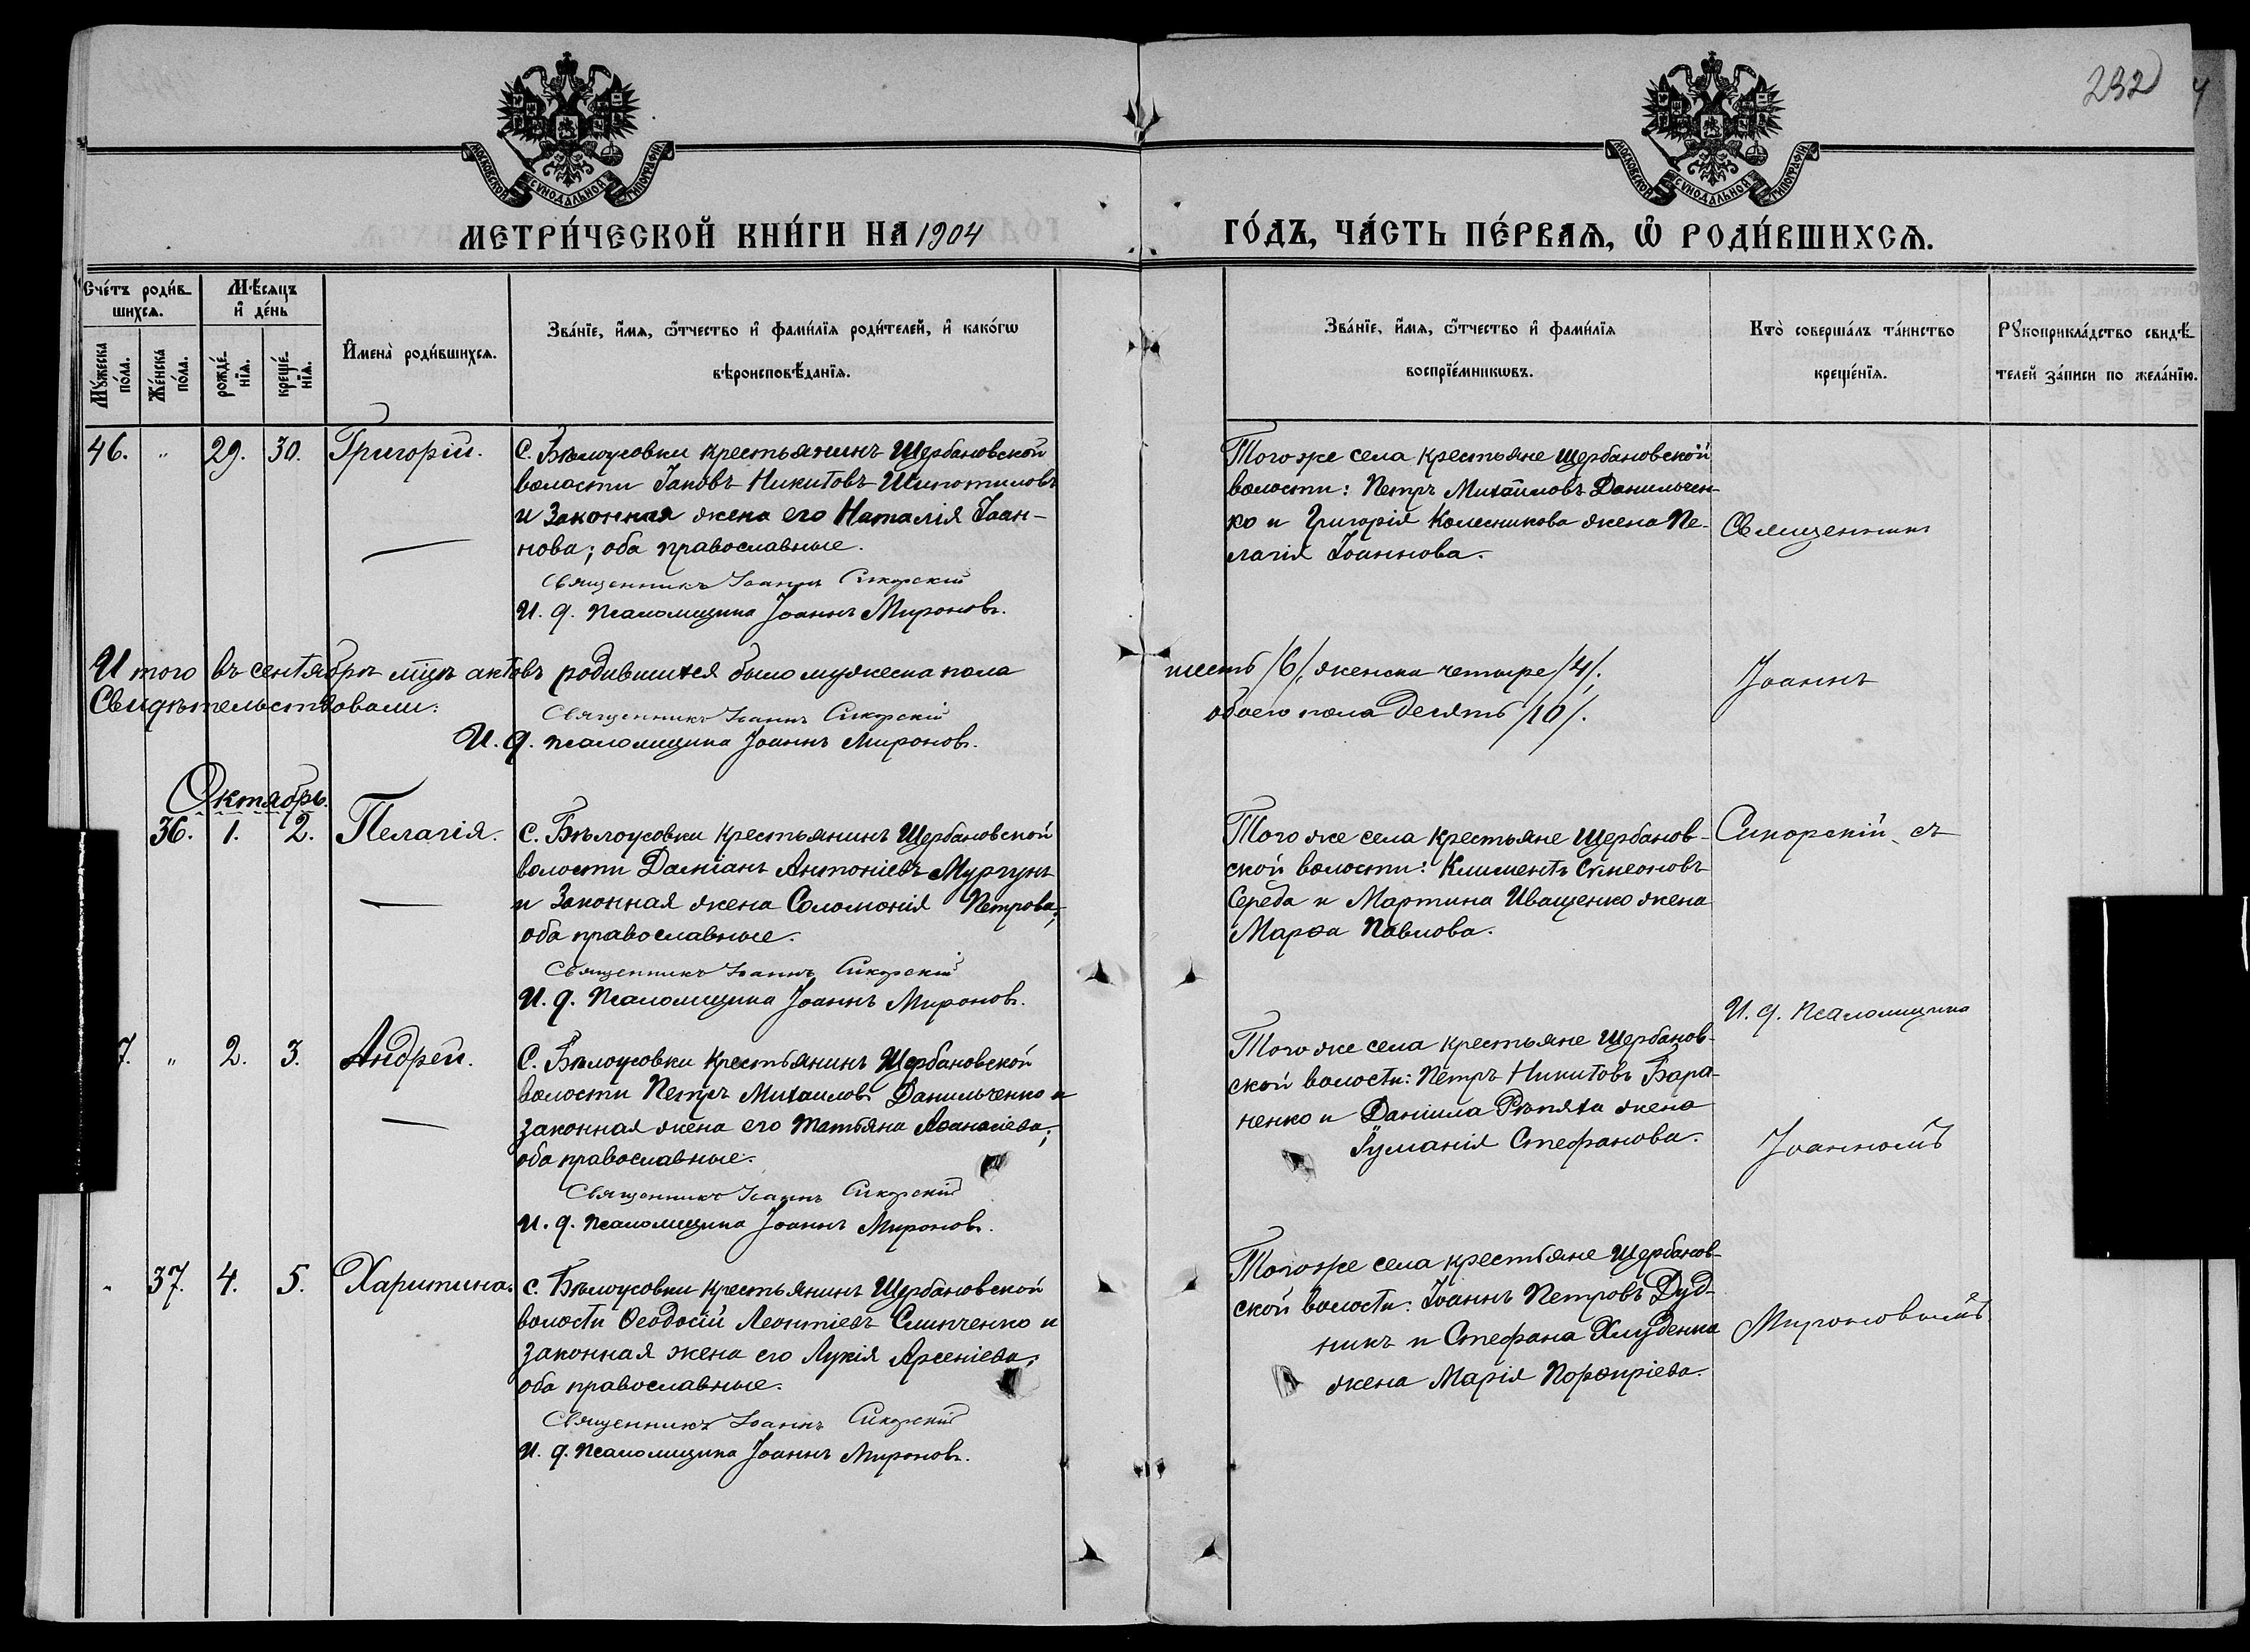 232
МОСКОВСКОЙ СѴНОДАЛЬНОЙ ТИПОГРАФІИ
МОСКОВСКОЙ СѴНОДАЛЬНОЙ ТИПОГРАФІИ
МЕТРИ́ЧЕСКОЙ КНИ́ГИ НА 1904
ГО́ДЪ, ЧА́СТЬ ПЕ́РВАѦ, Ѽ РОДИ́ВШИХСѦ.
Сче́тъ роди́в-
шихсѧ.
Мꙋ́жеска
по́ла.
Же́нска
по́ла.
Мѣ́сяцъ
и҆ де́нь
рожде́-
нїѧ.
креще́-
нїѧ.
И҆мена̀ роди́вшихсѧ.
Зва́нїе, и҆́мѧ, ѻ҆́тчество и҆ фами́лїѧ роди́телей, и҆ како́гѡ
вѣроисповѣ́данїѧ.
Зва́нїе, и҆́мѧ, ѻ҆́тчество и҆ фами́лїѧ
воспрїе́мникѡвъ.
Кто̀ соверша́лъ та́инство
креще́нїѧ.
Рꙋкоприкла́дство свидѣ́-
телей за́писи по жела́нїю.
46. " 29. 30. Григорій.
С. Бѣлоусовки крестьянинъ Щербановской
волости Іаковъ Никитовъ Шипотиловъ
и законная жена его Наталія Іоан-
нова; оба православные.
Священникъ Іоаннъ Сикорскій
И. д. псаломщика Іоаннъ Мироновъ.
Того же села крестьяне Щербановской
волости: Петръ Михаиловъ Данильчен-
ко и Григорія Колесникова жена Пе-
лагія Іоаннова.
Священникъ
Итого въ сентябрѣ м̃цѣ актовъ родившихся было мужеска пола
шесть /6/, женска четыре /4/.
Свидѣтельствовали:
обоего пола десять /10/.
Священникъ Іоаннъ Сикорскій
И. д. псаломщика Іоаннъ Мироновъ.
Іоаннъ
Октябрь.
36. 1. 2. Пелагія.
С. Бѣлоусовки крестьянинъ Щербановской
волости Даміанъ Антоніевъ Мургунъ
и законная жена Соломонія Петрова;
оба православные.
Священникъ Іоаннъ Сикорскій
И. д. псаломщика Іоаннъ Мироновъ.
Того же села крестьяне Щербанов-
ской волости: Климентъ Симеоновъ
Середа и Мартина Иващенко жена
Марѳа Павлова.
Сикорскій съ
И. д. псаломщика
7. " 2. 3. Андрей.
С. Бѣлоусовки крестьянинъ Щербановской
волости Петръ Михаиловъ Данильченко и
законная жена его Татьяна Аѳанасіева;
оба православные.
Священникъ Іоаннъ Сикорскій
И. д. псаломщика Іоаннъ Мироновъ.
Того же села крестьяне Щербанов-
ской волости: Петръ Никитовъ Бара-
ненко и Даніила Рѣпяха жена
Іуліанія Стефанова.
Іоанномъ
" 37. 4. 5. Харитина.
С. Бѣлоусовки крестьянинъ Щербановской
волости Ѳеодосій Леонтіевъ Слипченко и
законная жена его Лукія Арсеніева;
оба православные.
Священникъ Іоаннъ Сикорскій
И. д. псаломщика Іоаннъ Мироновъ.
Того же села крестьяне Щербанов-
ской волости: Іоаннъ Петровъ Дуд-
никъ и Стефана Хлуденка
жена Марія Порфиріева.
Мироновымъ